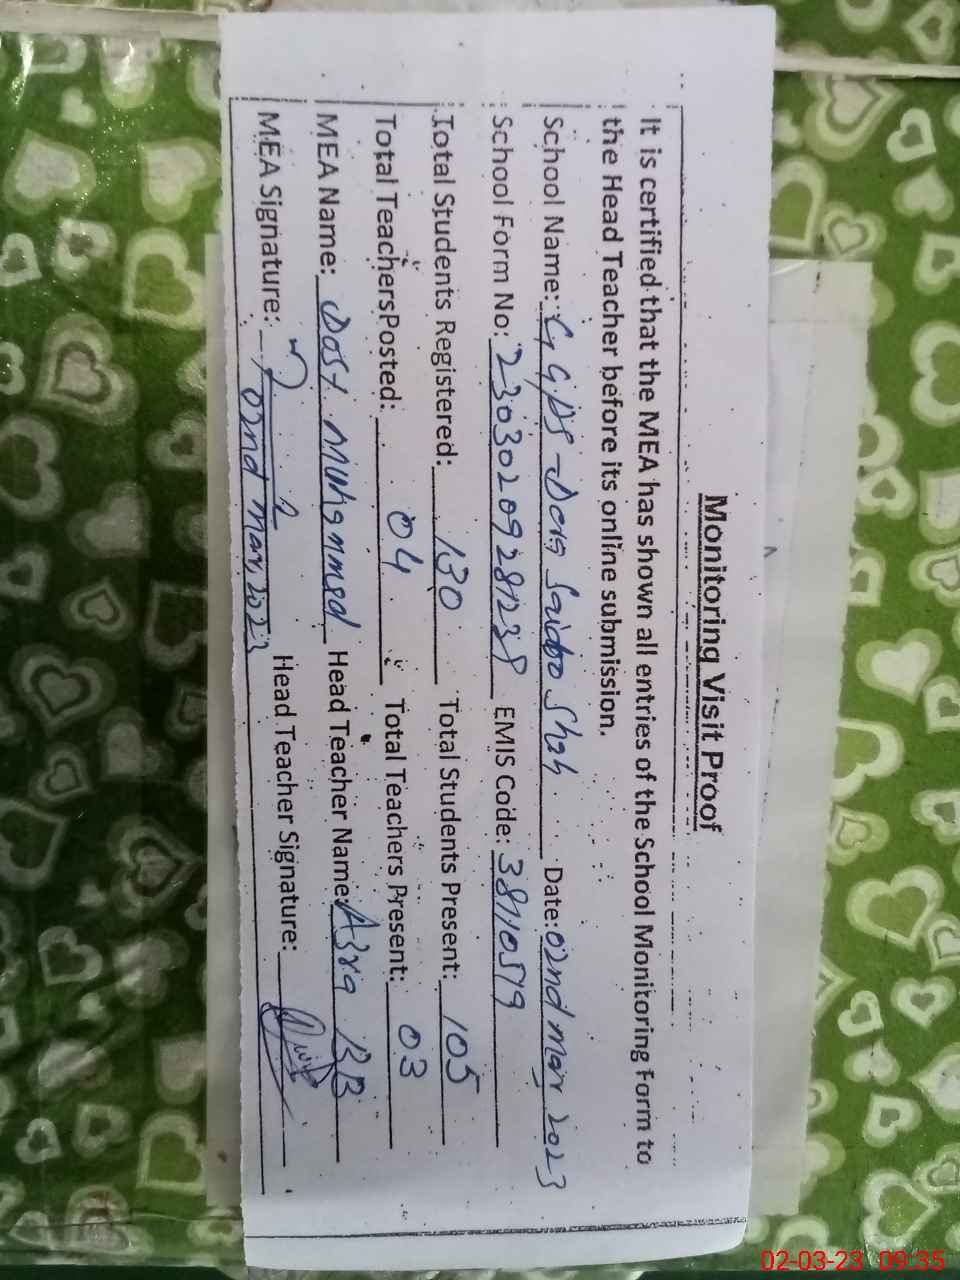 Monitoring Visit Proof
It is certified that the MEA has shown all entries of the School Monitoring Form to
the Head Teacher before its online submission.
School Name: GGPS - Dera Saidoo Shah Date: 02nd Mar, 2023
School Form No: 23030209281238 EMIS Code: 38110579
Total Students Registered: 130 Total Students Present: 105
Total Teachers Posted: 04 Total Teachers Present: 03
MEA Name: Dost Muhammed Head Teacher Name: Azra BB
MEA Signature: 02nd Mar, 2023 Head Teacher Signature:
02-03-23 09:35